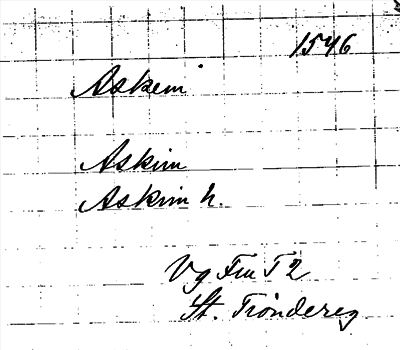 1546
Askem
Askim
Askim h.
Vg Fru T 2
St. Tröndereg